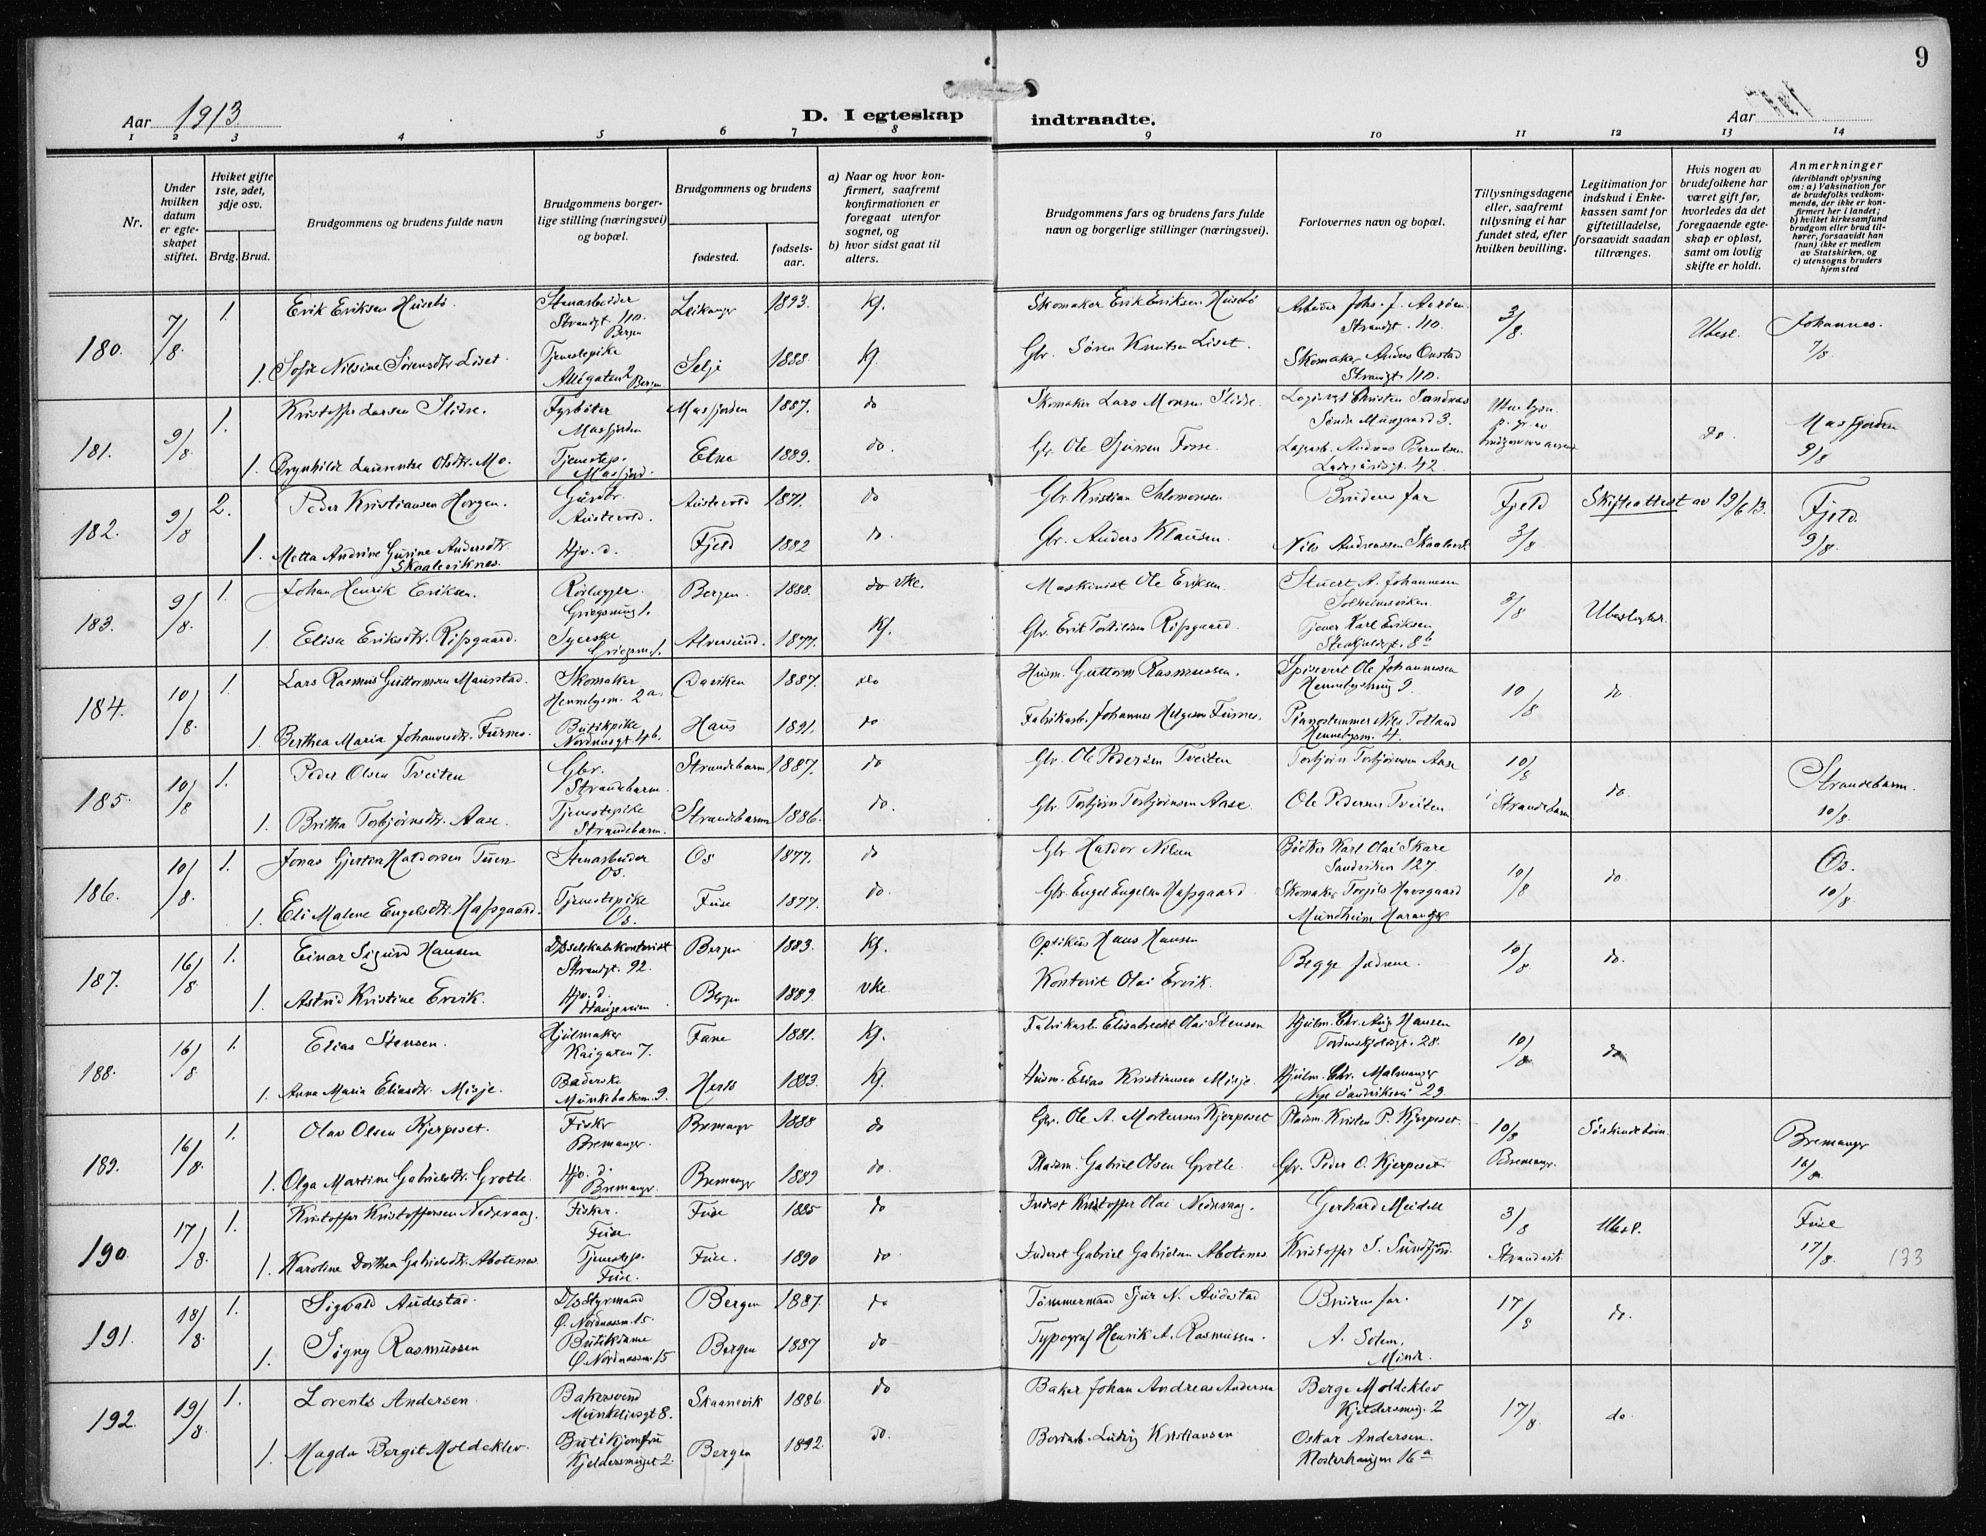 9
Aar 1913.
D. I egteskap indtraadte.
Aar
1 2 3 4 5 6 7 8 9 10 11 12 13 14
Nr.
Under hvilken datum er egteskapet stiftet.
Hviket gifte 1ste, 2det, 3dje osv.
Brdg. Brud.
Brudgommens og brudens fulde navn
Brudgommens borgerlige stilling (næringsvei) og bopæl.
Brudgommens og brudens
fødested.
fødselsaar.
a) Naar og hvor konfirmert, saafremt konfirmationen er foregaat utenfor sognet, og
b) hvor sidst gaat til alters.
Brudgommens fars og brudens fars fulde navn og borgerlige stillinger (næringsvei).
Forlovernes navn og bopæl.
Tillysningsdagene eller, saafremt tillysning ei har fundet sted, efter hvilken bevilling.
Legitimation for indskud i Enkekassen samt for giftetilladelse, forsaavidt saadan tiltrænges.
Hvis nogen av brudefolkene har været gift før, hvorledes da det foregaaende egteskap er opløst, samt om lovlig skifte er holdt.
Anmerkninger (deriblandt oplysning om: a) Vaksination for de brudefolks vedkommende, der ikke er konfirmert her i landet; b) hvilket kirkesamfund brudgom eller brud tilhører, forsaavidt han (hun) ikke er medlem av Statskirken, og c) utensogns bruders hjemsted
180. 7/8 1. Erik Eriksen Husebø. Stenarbeider Strandgt. 110. Bergen Leikanger 1893. Kf. Skomaker Erik Eriksen Husebø Arbeider Johs. J. Strandgt. 110. 3/8 Ubesl. Johannes. 7/8
1. Sofie Nilsine Sørensdtr. Liset Tjenestepike Allégaten 2 Bergen Selje 1888. Kf. Gbr. Søren Knutsen Liset. Skomaker Anders Onstad Strandgt. 110.
181. 9/8 1. Kristoffer Larsen Slidse. Fyrbøter Masfjorden Masfjorden 1887. do Skomaker Lars Monsen Slidse. Logivert Christen Sandnas 3. do. Masfjorden 9/8
1. Brynhilde Laurentse Olsdtr. Mo. Tjenestep. Masfjord. Etne 1889. do. Gbr. Ole Sjursen Fosse Andreas Berntsen 42.
182. 9/8 2. Peder Kristiansen Horgen. Gårdbr. Austevold. Austevold 1871. do Gbr. Kristian Salomonsen Brudens far Fjeld 3/8 Skifteattest av 19/6 13. Fjeld. 9/8
1. Metta Andrine Gurine Andersdtr. Skaaleviknes. Hjv. d. Fjeld 1882 do. Gbr. Anders Klausen. Nils Andreassen Skaalevik
183. 9/8 1. Johan Henrik Eriksen. Rørlægger Griegsmug 1. Bergen. 1888. do vke. Maskinist Ole Eriksen Stuert A. Johannesen Solheimsviken 3/8 Ubeslegtet.
1. Elisa Eriksdtr. Risgaard. Syerske Griegsm. 1. Alversund. 1877. Kf. Gbr. Erik Torkildsen Risgaard. Tjener Karl Eriksen Stenkjeldsgt. 8b
184. 10/8 1. Lars Rasmus Guttormsen Maurstad. Skomaker Hennebysm. 2a. Daviken 1887. do Husm. Guttorm Rasmussen. Spisevert Ole Johannessen Hennebysmug 9. 10/8 do.
1. Berthea Maria Johannesdtr. Furnes. Butikpike Nordnesgt 46. Haus 1891. do Fabrikarb. Johannes Helgesen Furnes. Pianostemmer Nils Totland Hennebysm. 4.
185. 10/8 1. Peder Olsen Tveiten Gbr. Strandebarm. Strandebarm 1887. do Gbr. Ole Pedersen Tveiten Torbjørn Torbjørnsen Aase 10/8 i Strandebarm do. Strandebarm. 10/8.
1. Britha Torbjørnsdtr. Aase. Tjenestepike Strandebarm. Strandebarm 1886. do. Gbr. Torbjørn Torbjørnsen Aase. Ole Pedersen Tveiten
186. 10/8. 1. Jonas Gjertin Haldorsen Tuen Stenarbeider Os. Os 1877. do Gbr Haldor Nilsen Bødker Karl Olai Skare Sandviken 127. 10/8 do Os. 10/8.
1. Eli Malene Engelsdtr. Hafsgaard. Tjenestepike Os. Fuse 1877. do. Gbr. Engel Engelsen Hafsgaard. Skomaker Torgils Havsgaard Mundheim Hardanger
187. 16/8 1. Einar Sigurd Hansen D/sselskabskontorist Strandgt. 92. Bergen 1883. Kf. Optikus Hans Hansen Begge fædrene. 10/8 do.
1. Astrid Kristine Ervik. Hjv. d. Haugeveien Bergen 1889. vke Kontorist Olai Ervik.
188. 16/8 1. Elias Stensen. Hjulmaker Kaigaten 7. Fane 1881. Kf. Fabrikarb. Elisabrecht Olai Stensen Hjulm. Chr. Aug. Hansen Tordenskjoldsgt. 28. 10/8 do
1. Anna Maria Eliasdtr. Misje. Baderske Munkebakm. 9. Herlø 1883. Kf. Husm. Elias Kristiansen Misje. Hjulm. Chr. Malmanger Nye Sandviksvei 29
189. 16/8. 1. Olav Olsen Kjerpeset. Fisker Bremanger. Bremanger 1888 do Gbr. Ole A. Mortensen Kjerpeset Pladsm. Kristen P. Kjerpeset. 10/8 Bremanger. Søskendebørn. Bremanger 16/8
1. Olga Martine Gabrielsdtr. Grotle. Hjv. d. Bremanger. Bremanger 1889 do. Pladsm. Gabriel Olsen Grotle. Gbr. Peder O. Kjerpeset.
190. 17/8. 1. Kristoffer Kristoffersen Nedrevaag. Fisker. Fuse. Fuse 1885 do Inderst Kristoffer Olai Nedrevaag. Gerhard Meidell 3/8 Strandvik Ubesl. Fuse 17/8. 133
1. Karoline Dorthea Gabrielsdtr. Abotenes. Tjenestep. Fuse. Fuse. 1890 do Inderst Gabriel Gabrielsen Abotenes. Kristoffer S. Sundfjord.
191. 18/8 1. Sigvald Audestad. D/sStyrmand Ø. Nordnesm. 15. Bergen 1887. do Tømmermand Sjur N. Audestad Brudens far. 17/8 do.
1. Signy Rasmussen Butikdame Ø. Nordnesm. 15 Bergen 1887 do Typograf Henrik A. Rasmussen. A. Solem. Minde.
192. 19/8. 1. Lorents Andersen. Bakersvend Munkelivsgt 8. Skaanevik 1886. do Baker Johan Andreas Andersen Berge Moldeklev Kjeldersmug. 2 17/8. do.
1. Magda Bergit Moldeklev. Butikjomfru Kjeldersmuget 2. Bergen 1892. do. Bordarb. Ludvig Kristiansen Oskar Andersen. Klosterhaugen 16a